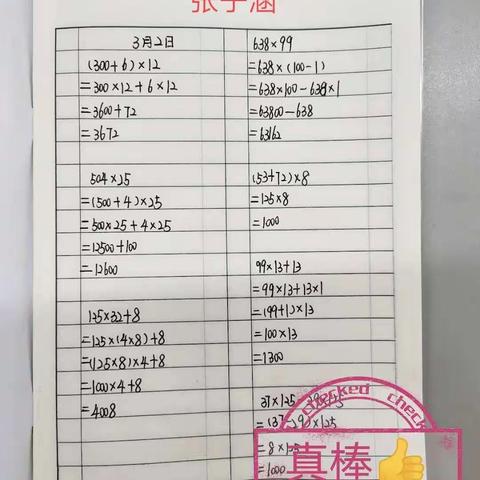 张子涵
3月2日
(300+6)×12
=300×12+6×12
=3600+72
=3672
504×25
=(500+4)×25
=500×25+4×25
=12500+100
=12600
125×32+8
=125×(4×8)+8
=(125×8)×4+8
=1000×4+8
=4008
638×99
=638×(100-1)
=638×100-638×1
=63800-638
=63162
(53+72)×8
=125×8
=1000
99×13+13
=99×13+13×1
=(99+1)×13
=100×13
=1300
37×125-29×125
=(37-29)×125
=8×125
=1000
checked check
真棒